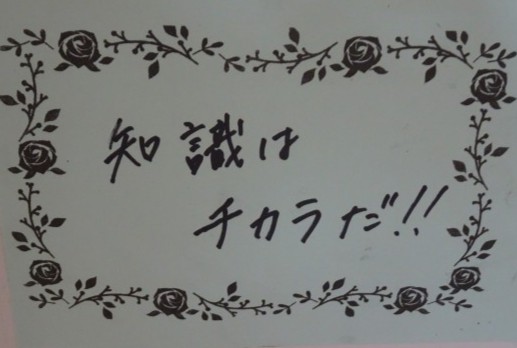 知識は
チカラだ!!